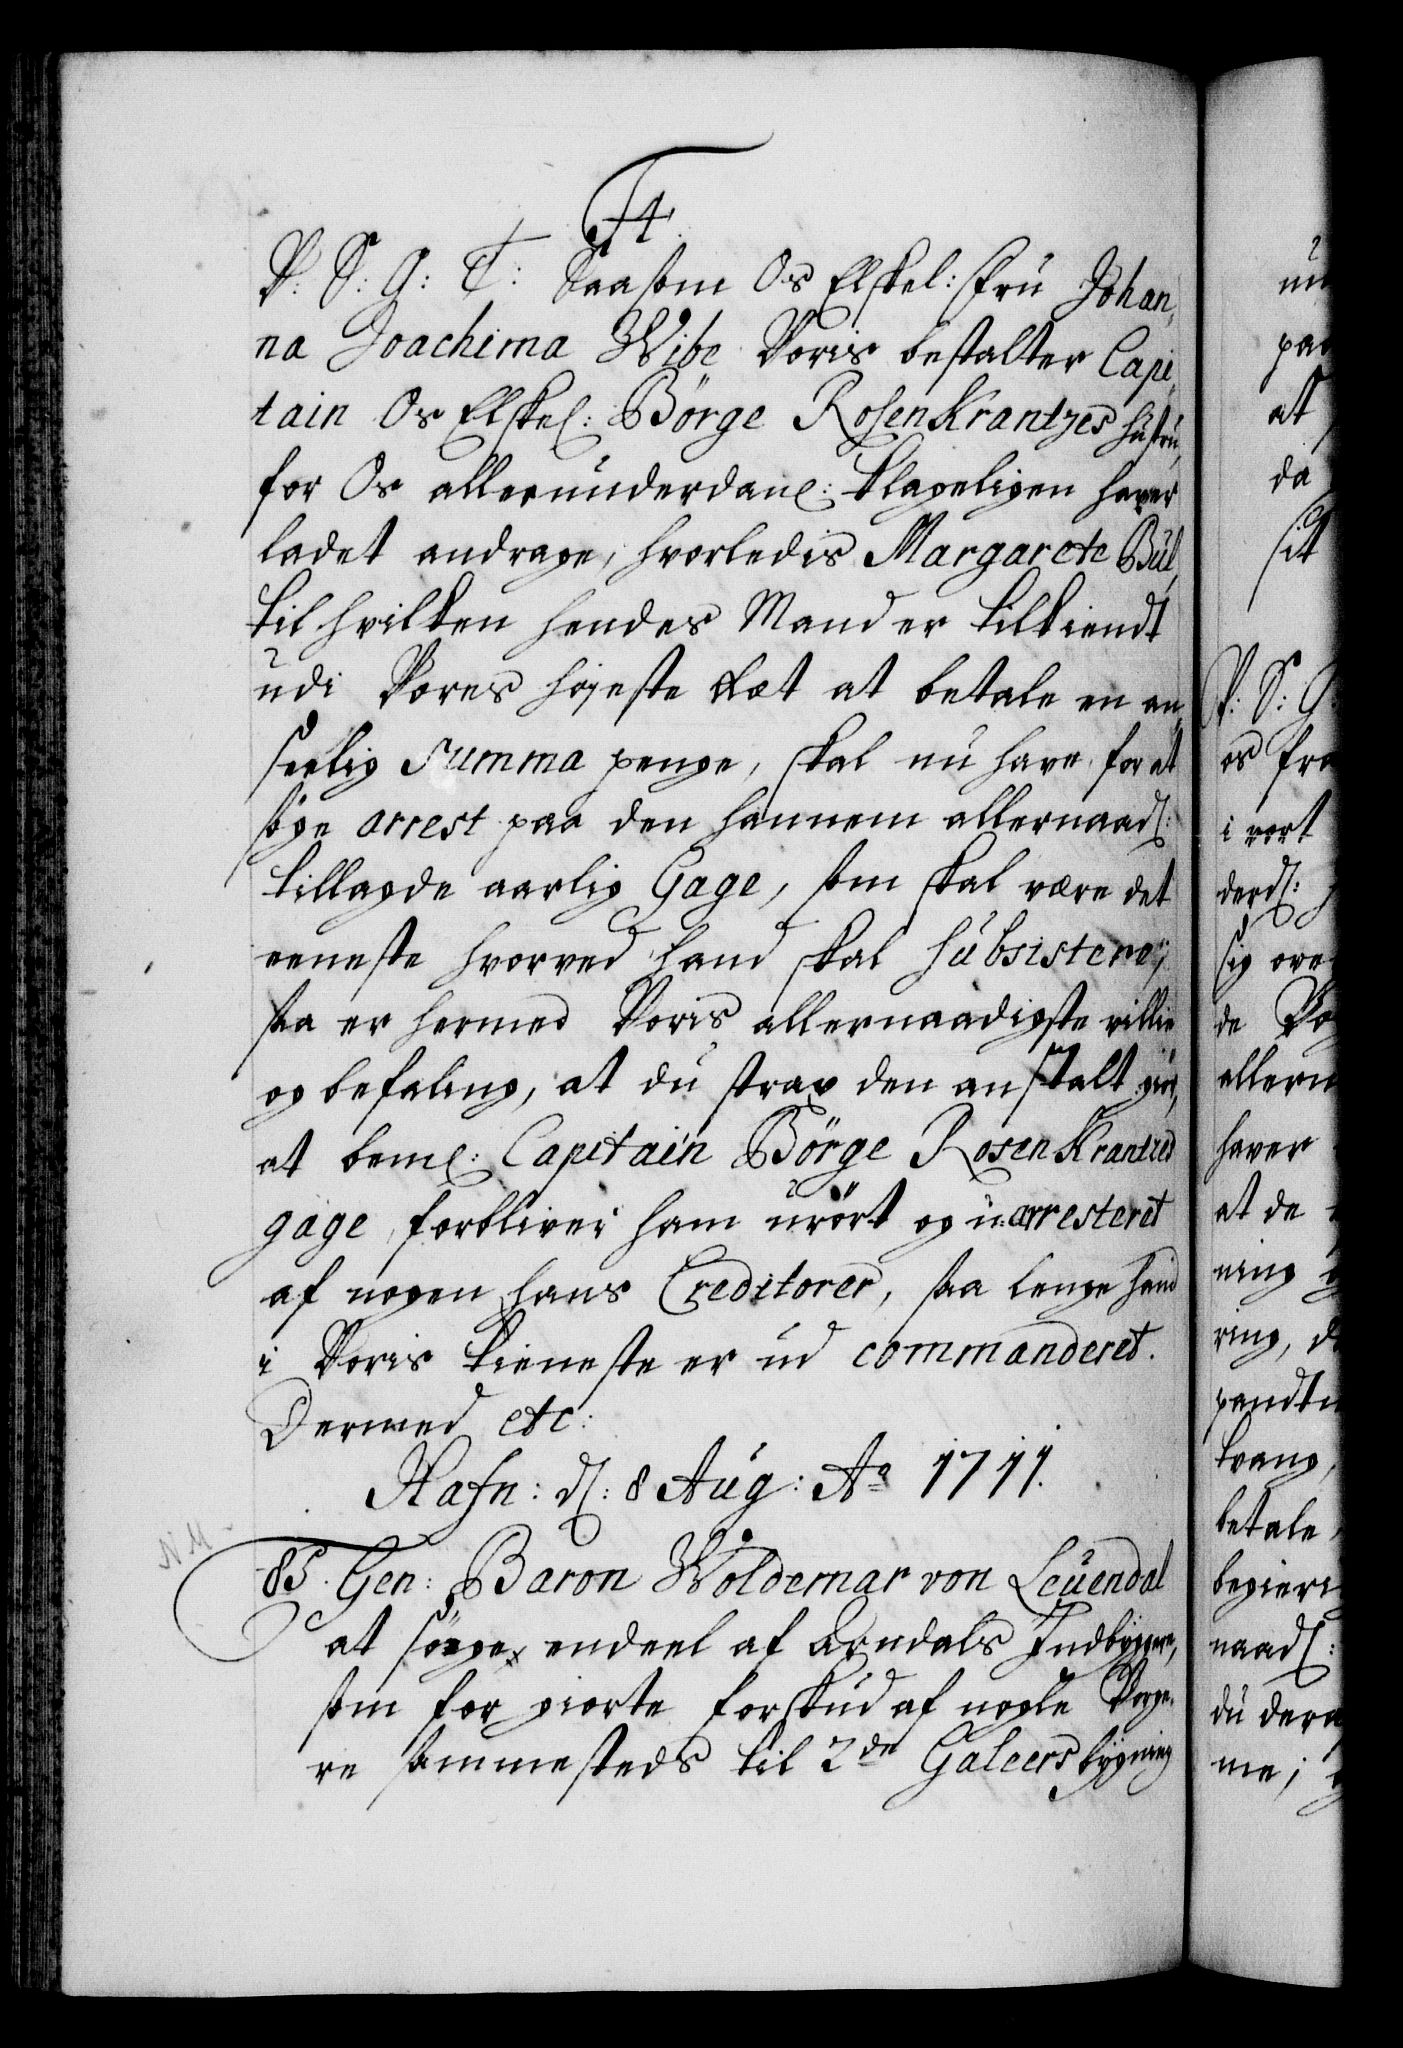 F4.
V: S: G: T: Saasom Os Elskel: Fru Johan,
na Joachima Wibe Voris bestalter Capi,
tain Os Elskel: Börge RosenKrantzes hustru,
for Os allerunderdanl: klageligen haver
ladet andrage, hvorledis Margarete Bül,
til hvilken hendes Mand er tilkiendt
udi Vores højeste Ræt at betale en an,
seelig Summa penge, skal nu have for at
søge arrest paa den hannem allernaadl:
tillagde aarlig Gage, som skal være det
eeneste hvorved hand skal Subsistere;
saa er hermed Voris allernaadigste villie
og befaling, at du strax den anstalt giør,
at beml: Capitain Börge RosenKrantzes
gage forbliver ham urört og u-arresteret
af nogen hans Creditorer, saa lenge hand
i Voris tieneste er ud commanderet.
Dermed etc:
Hafn: d: 8 Aug: Ao 1711.
N.M.
85. Gen: Baron Woldemar von Leuendal
at søge endeel af Arndals Indbyggere,
som for giorte forskud af nogle Borge,
re sammesteds til 2de Galeers bygning